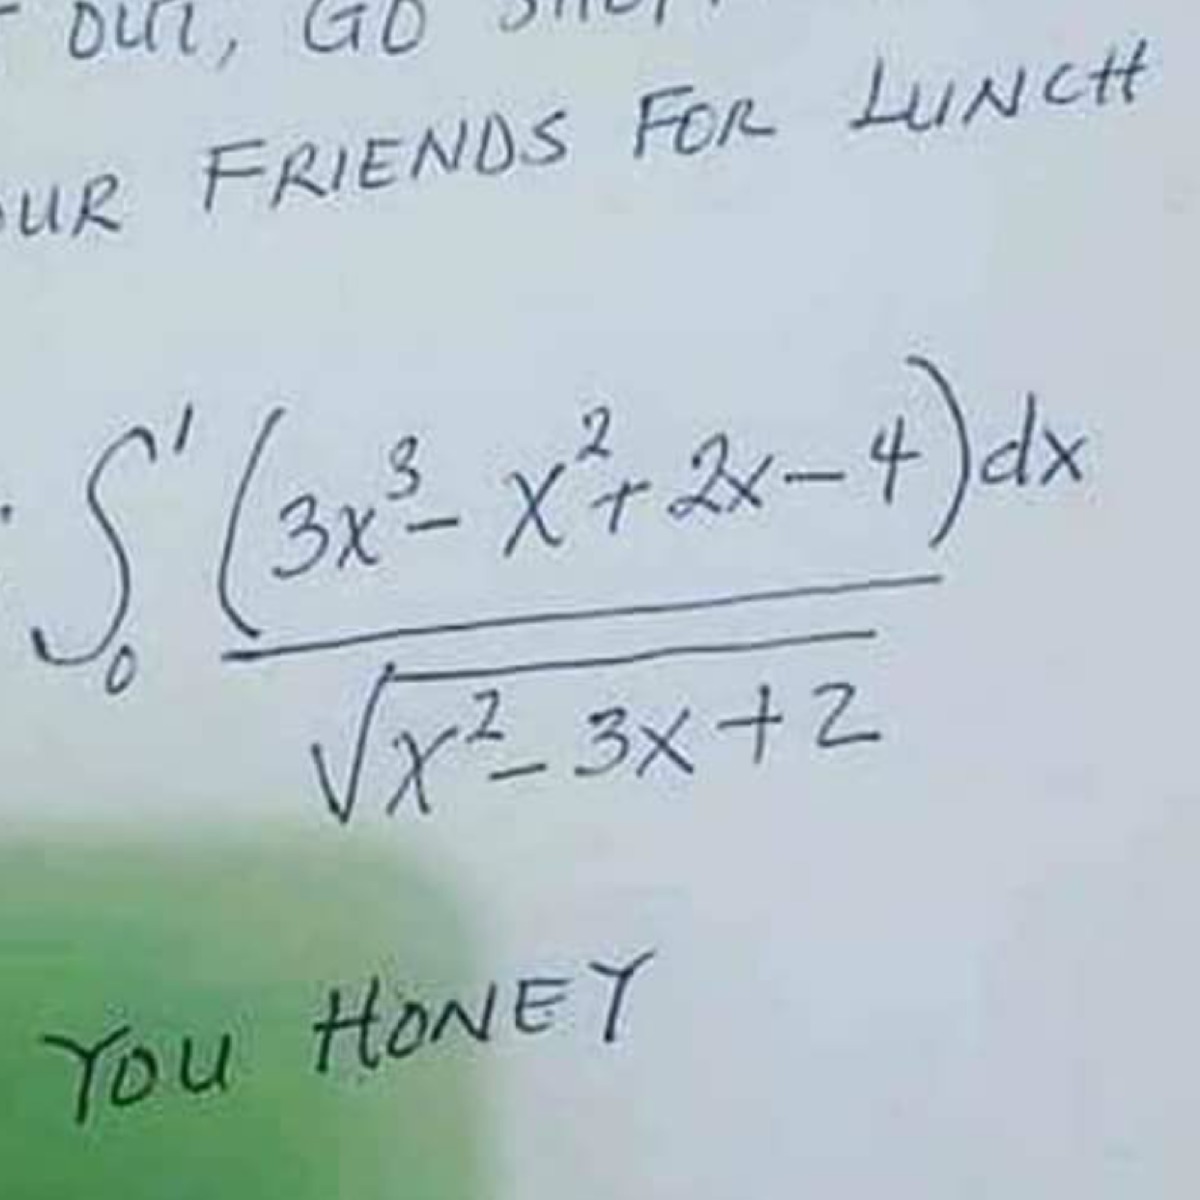 OUT, GO
OUR FRIENDS FOR LUNCH
∫₀¹ (3x³ - x² + 2x - 4)dx
√x² - 3x + 2
YOU HONEY